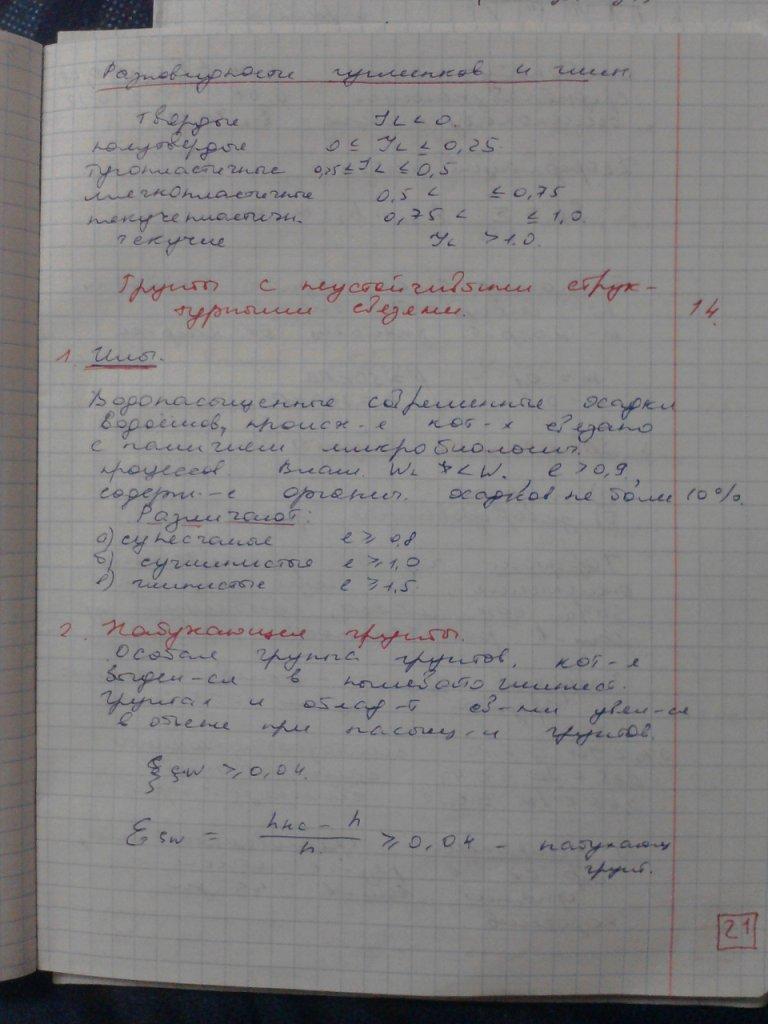 Разновидности суглинков и глин.
твердые JL < 0.
полутвердые 0 ≤ JL ≤ 0,25.
тугопластичные 0,25 ≤ JL ≤ 0,5
мягкопластичные 0,5 < ≤ 0,75
текучепластичн. 0,75 < ≤ 1,0.
текучие JL > 1.0.
Грунты с неустойчивыми струк-
турными связями. 14.
1. Илы.
Водонасыщенные современные осадки
водоемов, происх-е кот-х связано
с наличием микробиологич.
процессов Влаж. WL < W. e > 0,9,
содерж-е органич. осадков не более 10%.
Различают:
а) супесчаные e ≥ 0,8
б) суглинистые e ≥ 1,0
в) глинистые e ≥ 1,5.
2. Набухающие грунты.
Особая группа грунтов, кот-е
выдел-ся в пылевато глинист.
грунтах и облад-т св-ми увел-ся
в объеме при насыщ-и грунтов.
ξsw ≥ 0,04.
Ɛsw = hнс - h / h ≥ 0,04 - набухающ
грунт.
21